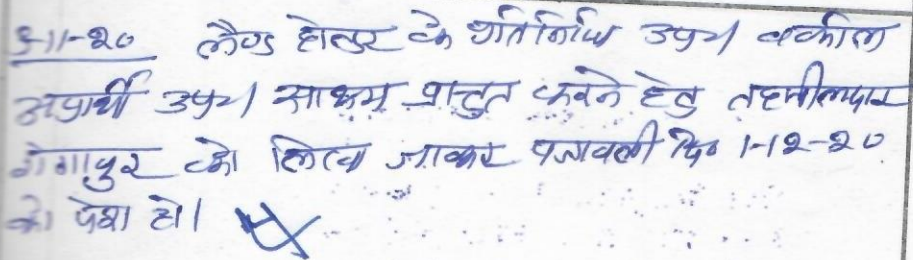 3-11-20 लैण्ड होल्डर के प्रतिनिधि उप। वकील
अप्रार्थी उप। साक्ष्य प्रस्तुत करने हेतु तहसीलदार
गंगापुर को लिखा जाकर पत्रावली दि० 1-12-20
को पेश हो।